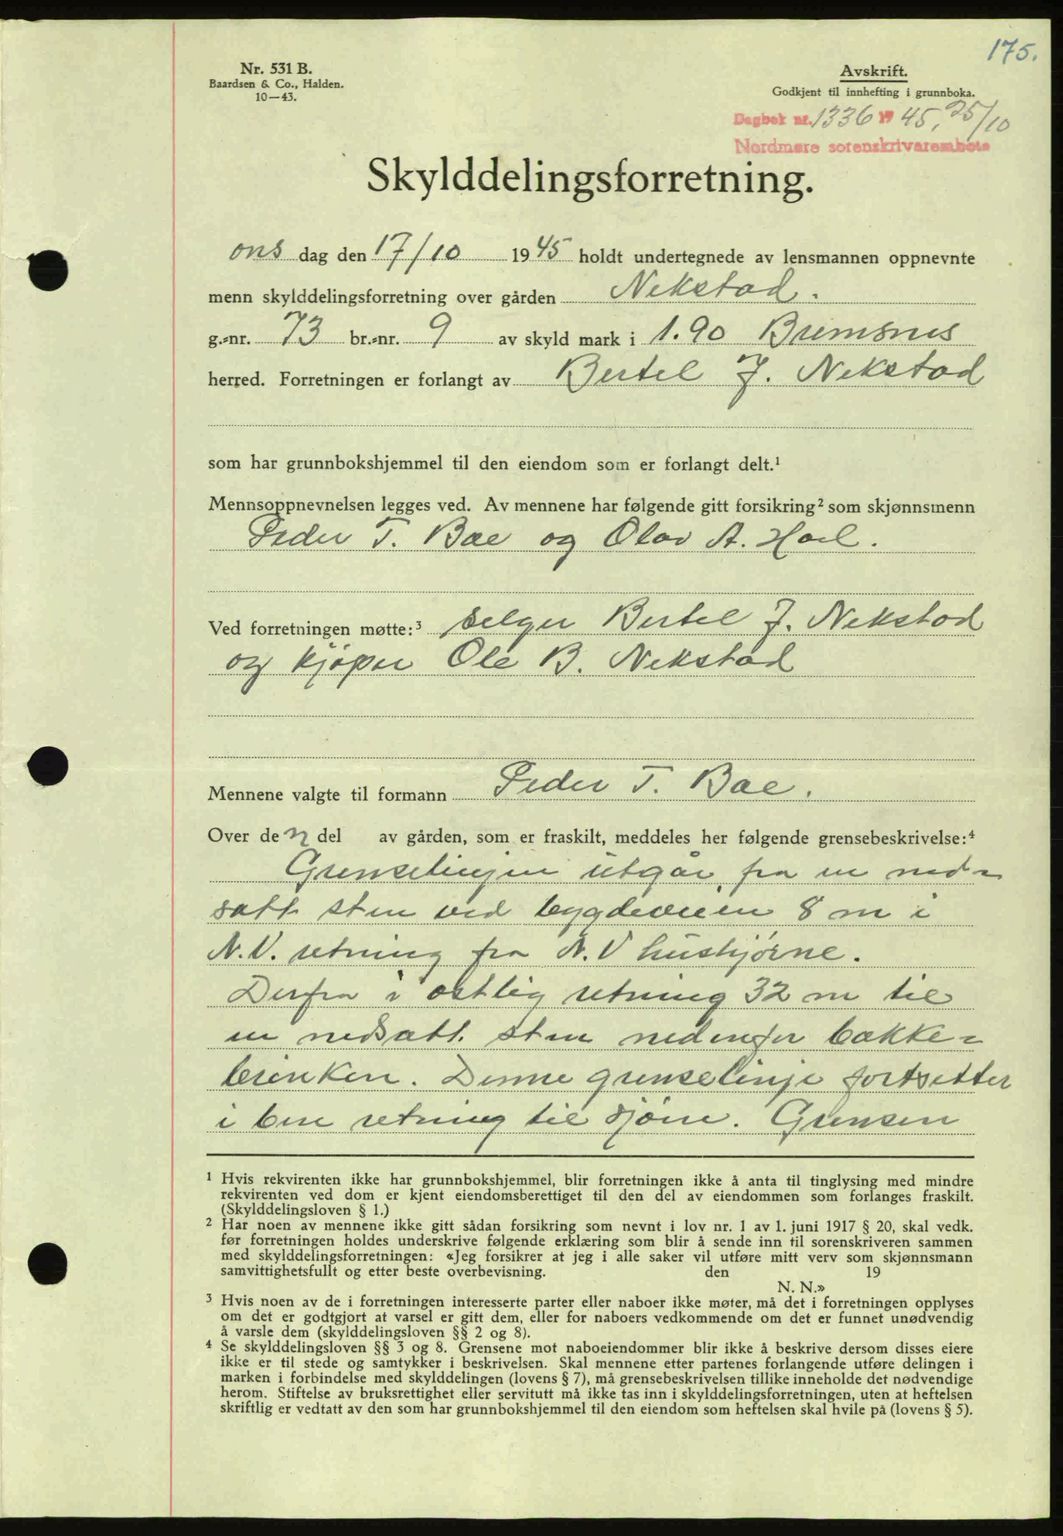 175.
Nr. 531 B.
Baardsen & Co., Halden.
10—43.
Avskrift.
Godkjent til innhefting i grunnboka.
Dagbok nr. 1336 19 45, 25/10
Nordmøre sorenskrivarembete
Skylddelingsforretning.
ons dag den 17/10 1945 holdt undertegnede av lensmannen oppnevnte
menn skylddelingsforretning over gården Nekstad.
g.-nr. 73 br.-nr. 9 av skyld mark i 1.90 Bremsnes
herred. Forretningen er forlangt av Bertel J. Nekstad
som har grunnbokshjemmel til den eiendom som er forlangt delt.¹
Mennsoppnevnelsen legges ved. Av mennene har følgende gitt forsikring² som skjønnsmenn
Peder T. Bae og Olav A. Hoel.
Ved forretningen møtte:³ selger Bertel J. Nekstad
og kjøper Ole B. Nekstad
Mennene valgte til formann Peder T. Bae.
Over den del av gården, som er fraskilt, meddeles her følgende grensebeskrivelse:⁴
Grenselinjen utgår fra en ned-
satt sten ved bygdeveien 8 m i
N.V. retning fra N.V hushjørne.
Derfra i østlig retning 32 m til
en nedsatt sten nedenfor bakke-
brinken. Denne grenselinje fortsetter
i bene retning til sjøen. Grensen
¹ Hvis rekvirenten ikke har grunnbokshjemmel, blir forretningen ikke å anta til tinglysing med mindre
rekvirenten ved dom er kjent eiendomsberettiget til den del av eiendommen som forlanges fraskilt.
(Skylddelingsloven § 1.)
² Har noen av mennene ikke gitt sådan forsikring som nevnt i lov nr. 1 av 1. juni 1917 § 20, skal vedk.
før forretningen holdes underskrive følgende erklæring som blir å sende inn til sorenskriveren sammen
med skylddelingsforretningen: «Jeg forsikrer at jeg i alle saker vil utføre mitt verv som skjønnsmann
samvittighetsfullt og etter beste overbevisning. den 19
N. N.»
³ Hvis noen av de i forretningen interesserte parter eller naboer ikke møter, må det i forretningen opplyses
om det er godtgjort at varsel er gitt dem, eller for naboers vedkommende om det er funnet unødvendig
å varsle dem (skylddelingsloven §§ 2 og 8).
⁴ Se skylddelingsloven §§ 3 og 8. Grensene mot naboeiendommer blir ikke å beskrive dersom disses eiere
ikke er til stede og samtykker i beskrivelsen. Skal mennene etter partenes forlangende utføre delingen i
marken i forbindelse med skylddelingen (lovens § 7), må grensebeskrivelsen tillike inneholde det nødvendige
herom. Stiftelse av bruksrettighet eller servitutt må ikke tas inn i skylddelingsforretningen, uten at heftelsen
skriftlig er vedtatt av den som har grunnbokshjemmel til den eiendom som heftelsen skal hvile på (lovens § 5).